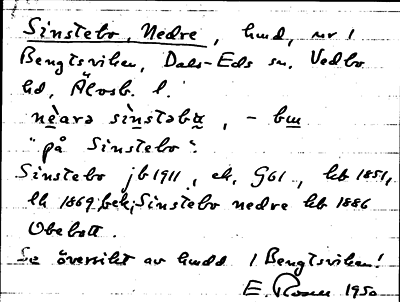 Sinstebo, Nedre, hmd, nr 1
Bengtsviken, Dals-Eds sn. Vedbo
hd, Älvsb. l.
nèara sìnstəbɷ, - bɯ
"på Sinstebo".
Sinstebo jb 1911, ek, G61, kb 1851,
lh 1869, bek; Sinstebo nedre kb 1886
Obebott.
Se översikt av hmdd / Bengtsviken!
E. Rosell 1950